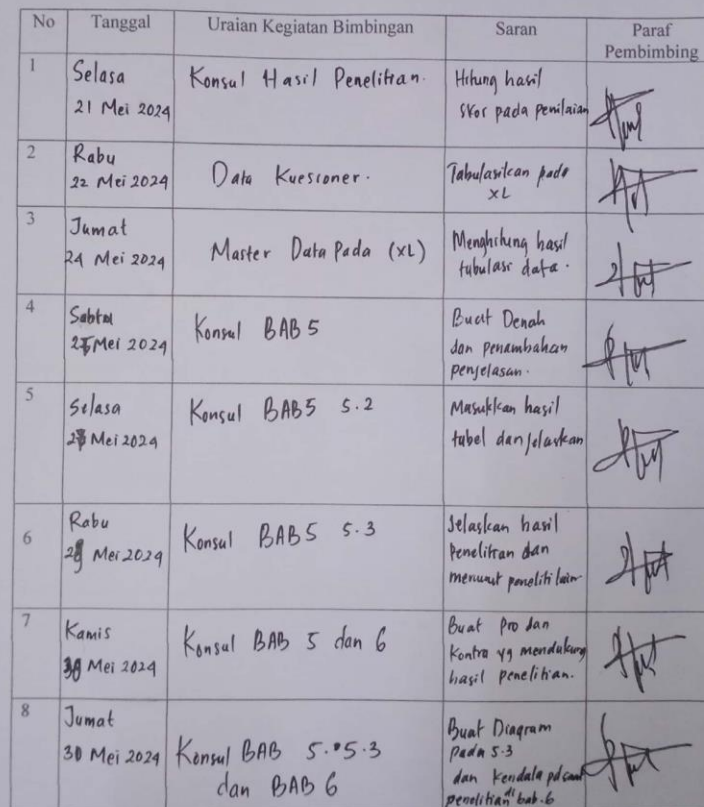 No Tanggal Uraian Kegiatan Bimbingan Saran Paraf
Pembimbing
1 Selasa
21 Mei 2024
Konsul Hasil Penelitian.
Hitung hasil
skor pada penilaian
2 Rabu
22 Mei 2024
Data Kuesioner.
Tabulasikan pada
XL
3 Jumat
24 Mei 2024
Master Data Pada (XL)
Menghitung hasil
tabulasi data.
4 Sabtu
Mei 2024
Konsul BAB 5
Buat Denah
dan penambahan
penjelasan.
5 Selasa
Mei 2024
Konsul BAB5 5.2
Masukkan hasil
tabel dan jelaskan
6 Rabu
Mei 2024
Konsul BAB5 5.3
Jelaskan hasil
Penelitian dan
menurut peneliti lain
7 Kamis
Mei 2024
Konsul BAB 5 dan 6
Buat Pro dan
Kontra yg mendukung
hasil penelitian.
8 Jumat
30 Mei 2024
Konsul BAB 5. 5.3
dan BAB 6
Buat Diagram
Pada 5.3
dan Kendala
penelitian di bab.6